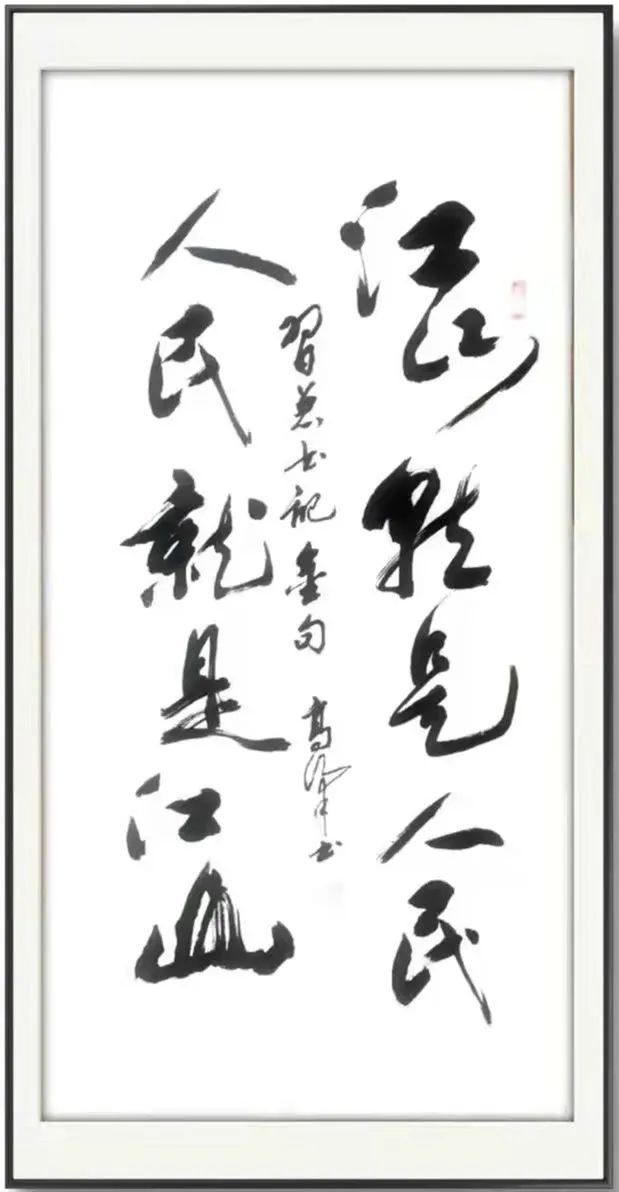 江山就是人民
人民就是江山
习总书记金句
高峰书